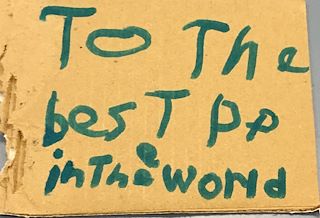 To The
besT pp
in The world